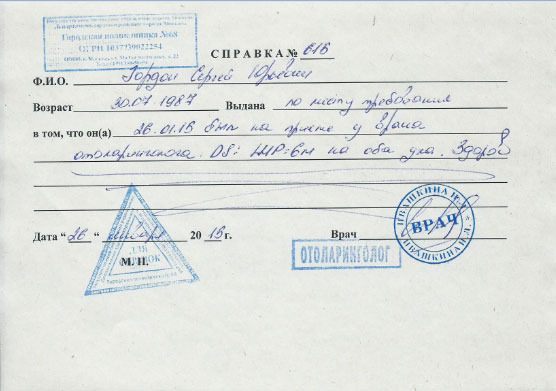 Городская поликлиника №68
ОГРН 1037739022254
СПРАВКА № 616
Ф.И.О. Гордон Сергей Юрьевич
Возраст 30.07 1987 Выдана по месту требования
в том, что он(а) 26.01.15 был на приеме у врача
отоларинголога. DS: ШР=6м на оба уха. Здоров
Дата "26" января 2015 г. Врач
М.П.
ОТОЛАРИНГОЛОГ
ИВАШКИНА Н.Л.
ВРАЧ
ИВАШКИНА Н.Л.